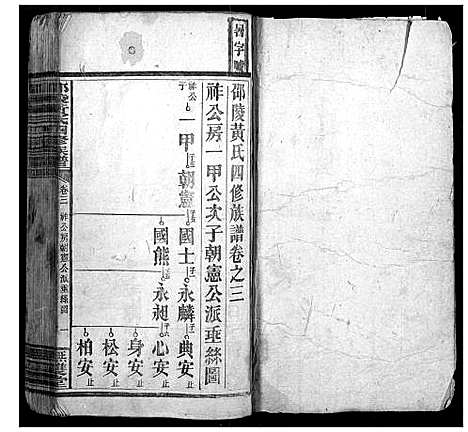 邵陵黃氏四修族譜卷之三
祚公房一甲公次子朝憲公派垂絲圖
祚公子
一甲
朝憲
國士
永麟
典安止
國熊
永昶
心安止
身安止
松安止
柏安止
卷三
祚公房朝憲公派垂絲圖
一